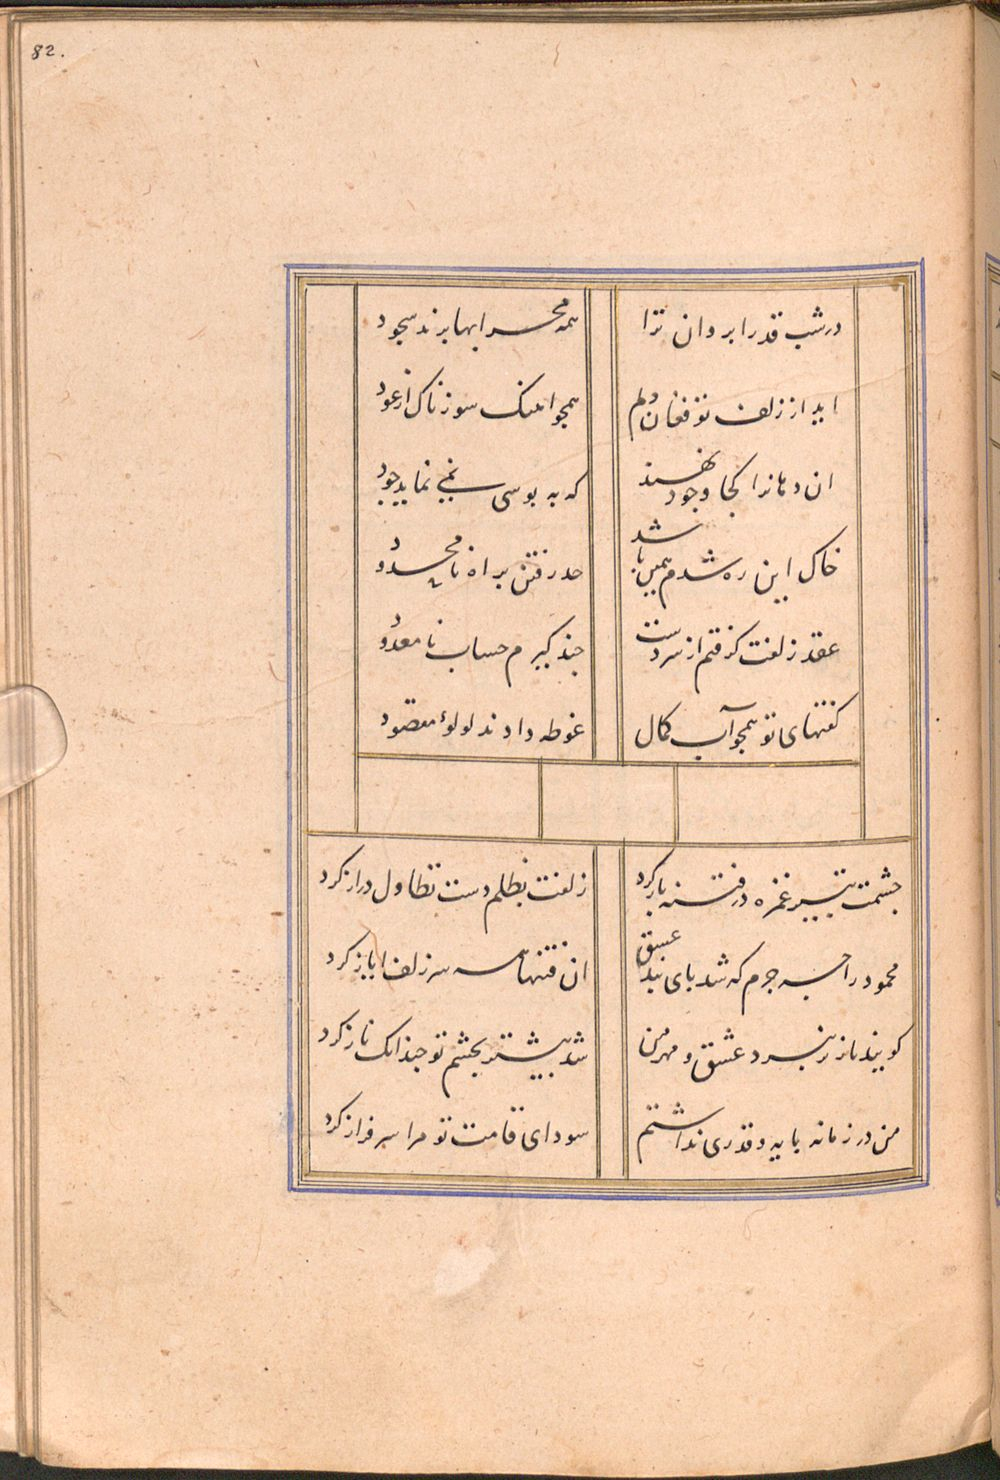 82.
در شب قدر ابروان ترا
همه محرابها برند سجود
اید از زلف تو فغان دلم
همچو اهنک سوزناک از عود
ان دهانرا کجا وجود نهند
که به بوسی نمی نماید جود
خاک این ره شدم همین باشد
حد رفتن براه نامحدود
عقد زلفت کرفتم از سر دست
چند کیرم حساب نامعدود
کفتهای تو همچو آب کمال
غوطه دادند لولوٴ معقود
چشمت بتیر غمزه در فتنه باز کرد
زلفت بظلم دست تطاول دراز کرد
محمود را چه جرم که شد پای بند عشق
ان فتنها همه سر زلف ایاز کرد
کویند ناز برد عشق و مهر من
شد بیشتر بچشم تو چندانک ناز کرد
من در زمانه پایه و قدری نداشتم
سودای قامت تو مرا سرفراز کرد